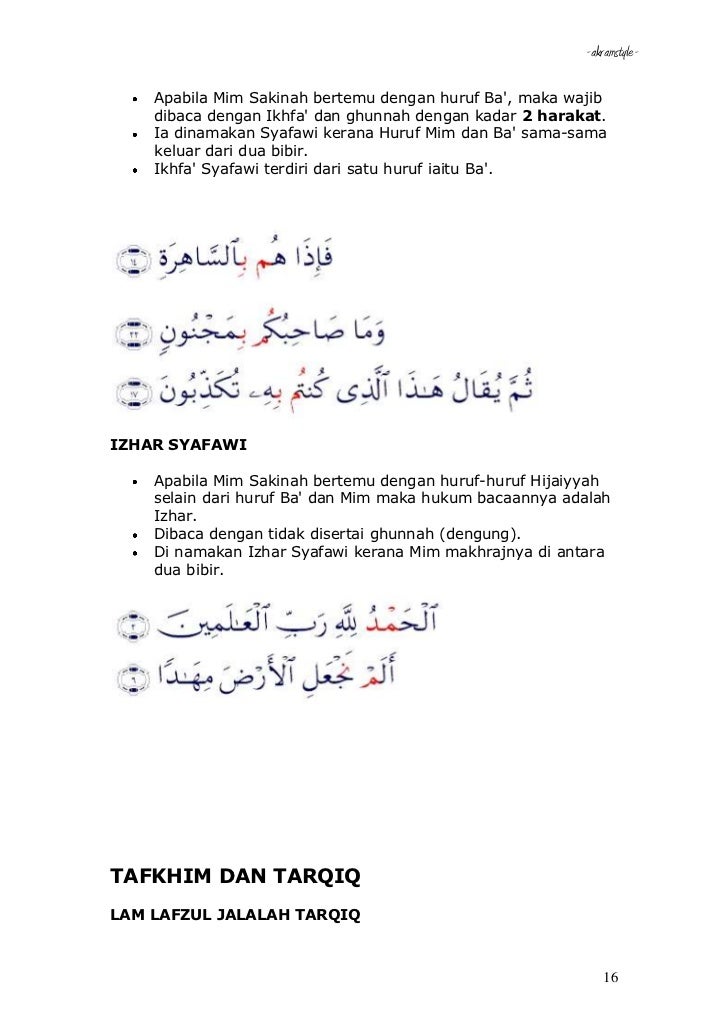 -akramstyle-
• Apabila Mim Sakinah bertemu dengan huruf Ba', maka wajib
dibaca dengan Ikhfa' dan ghunnah dengan kadar 2 harakat.
• Ia dinamakan Syafawi kerana Huruf Mim dan Ba' sama-sama
keluar dari dua bibir.
• Ikhfa' Syafawi terdiri dari satu huruf iaitu Ba'.
فَإِذَا هُم بِٱلسَّاهِرَةِ ١٤
وَمَا صَاحِبُكُم بِمَجْنُونٍ ٢٢
ثُمَّ يُقَالُ هَـٰذَا ٱلَّذِى كُنتُم بِهِۦ تُكَذِّبُونَ ١٧
IZHAR SYAFAWI
• Apabila Mim Sakinah bertemu dengan huruf-huruf Hijaiyyah
selain dari huruf Ba' dan Mim maka hukum bacaannya adalah
Izhar.
• Dibaca dengan tidak disertai ghunnah (dengung).
• Di namakan Izhar Syafawi kerana Mim makhrajnya di antara
dua bibir.
ٱلْحَمْدُ لِلَّهِ رَبِّ ٱلْعَـٰلَمِينَ ٢
أَلَمْ نَجْعَلِ ٱلْأَرْضَ مِهَـٰدًا ٦
TAFKHIM DAN TARQIQ
LAM LAFZUL JALALAH TARQIQ
16